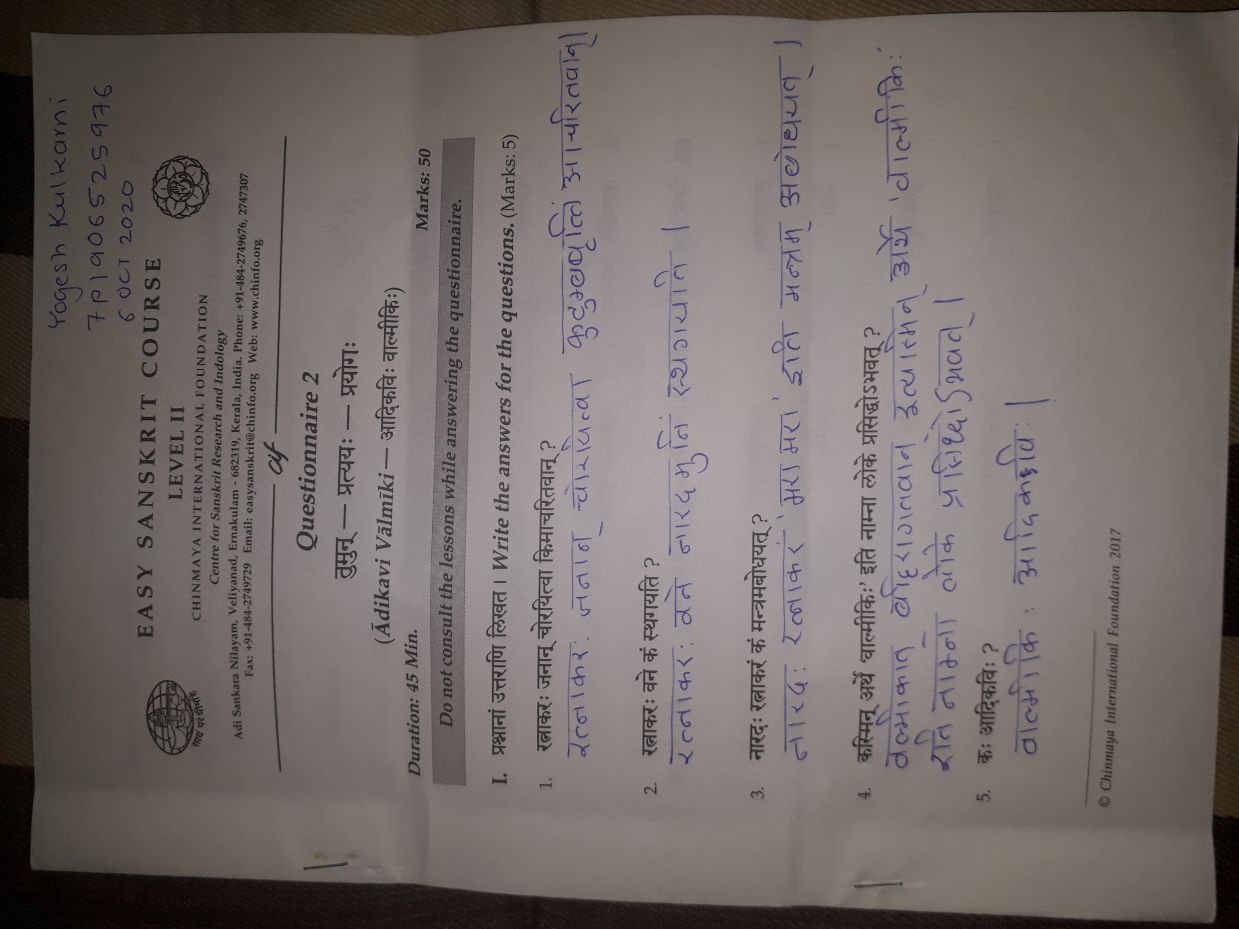 Yogesh Kulkarni
7P1906525976
6 OCT 2020
EASY SANSKRIT COURSE
LEVEL II
CHINMAYA INTERNATIONAL FOUNDATION
Centre for Sanskrit Research and Indology
सत्यं परं धीमहि
Adi Sankara Nilayam, Veliyanad, Ernakulam - 682319, Kerala, India. Phone: +91-484-2749676, 2747307
Fax: +91-484-2749729 Email: easysanskrit@chinfo.org Web: www.chinfo.org
cif
Questionnaire 2
तुमुन् — प्रत्ययः — प्रयोगः
(Ādikavi Vālmīki — आदिकविः वाल्मीकिः)
Duration: 45 Min. Marks: 50
Do not consult the lessons while answering the questionnaire.
I. प्रश्नानां उत्तराणि लिखत । Write the answers for the questions. (Marks: 5)
1. रत्नाकरः जनान् चोरयित्वा किमाचरितवान् ?
रत्नाकरः जनान् चोरयित्वा कुटुम्बवृत्तिं आचरितवान्।
2. रत्नाकरः वने कं स्थगयति ?
रत्नाकरः वने नारदमुनिं स्थगयति ।
3. नारदः रत्नाकरं कं मन्त्रमबोधयत् ?
नारदः रत्नाकरं 'मरा मरा' इति मन्त्रम् अबोधयत् ।
4. कस्मिन् अर्थे 'वाल्मीकिः' इति नाम्ना लोके प्रसिद्धोऽभवत् ?
वल्मीकात् बहिरागतवान् इत्यस्मिन् अर्थे 'वाल्मीकिः'
इति नाम्ना लोके प्रसिध्दोऽभवत् ।
5. कः आदिकविः ?
वाल्मीकिः आदिकविः |
© Chinmaya International Foundation 2017